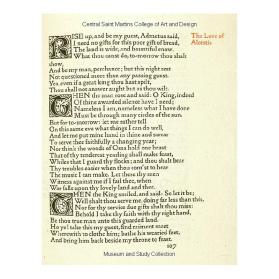 Central Saint Martins College of Art and Design
RISE up, and be my guest, Admetus said,
I need no gifts for this poor gift of bread,
The land is wide, and bountiful enow.
What thou canst do, to-morrow thou shalt
show,
And be my man, perchance; but this night rest
Not questioned more than any passing guest.
Yea, even if a great king thou hast spilt,
Thou shalt not answer aught but as thou wilt.
The Love of
Alcestis
THEN the man rose and said: O King, indeed
Of thine awarded silence have I need;
Nameless I am, nameless what I have done
Must be through many circles of the sun.
But for to-morrow: let me rather tell
On this same eve what things I can do well,
And let me put mine hand in thine and swear
To serve thee faithfully a changing year;
Nor think the woods of Ossa hold one beast
That of thy tenderest yeanling shall make feast,
Whiles that I guard thy flocks; and thou shalt bear
Thy troubles easier when thou com'st to hear
The music I can make. Let these thy men
Witness against me if I fail thee, when
War falls upon thy lovely land and then.
THEN the King smiled, and said: So let it be;
Well shalt thou serve me, doing far less than this,
Nor for thy service due gifts shalt thou miss:
Behold I take thy faith with thy right hand,
Be thou true man unto this guarded land.
Ho ye! take this my guest, find raiment meet
Wherewith to clothe him; bathe his wearied feet,
And bring him back beside my throne to feast.
107
Museum and Study Collection